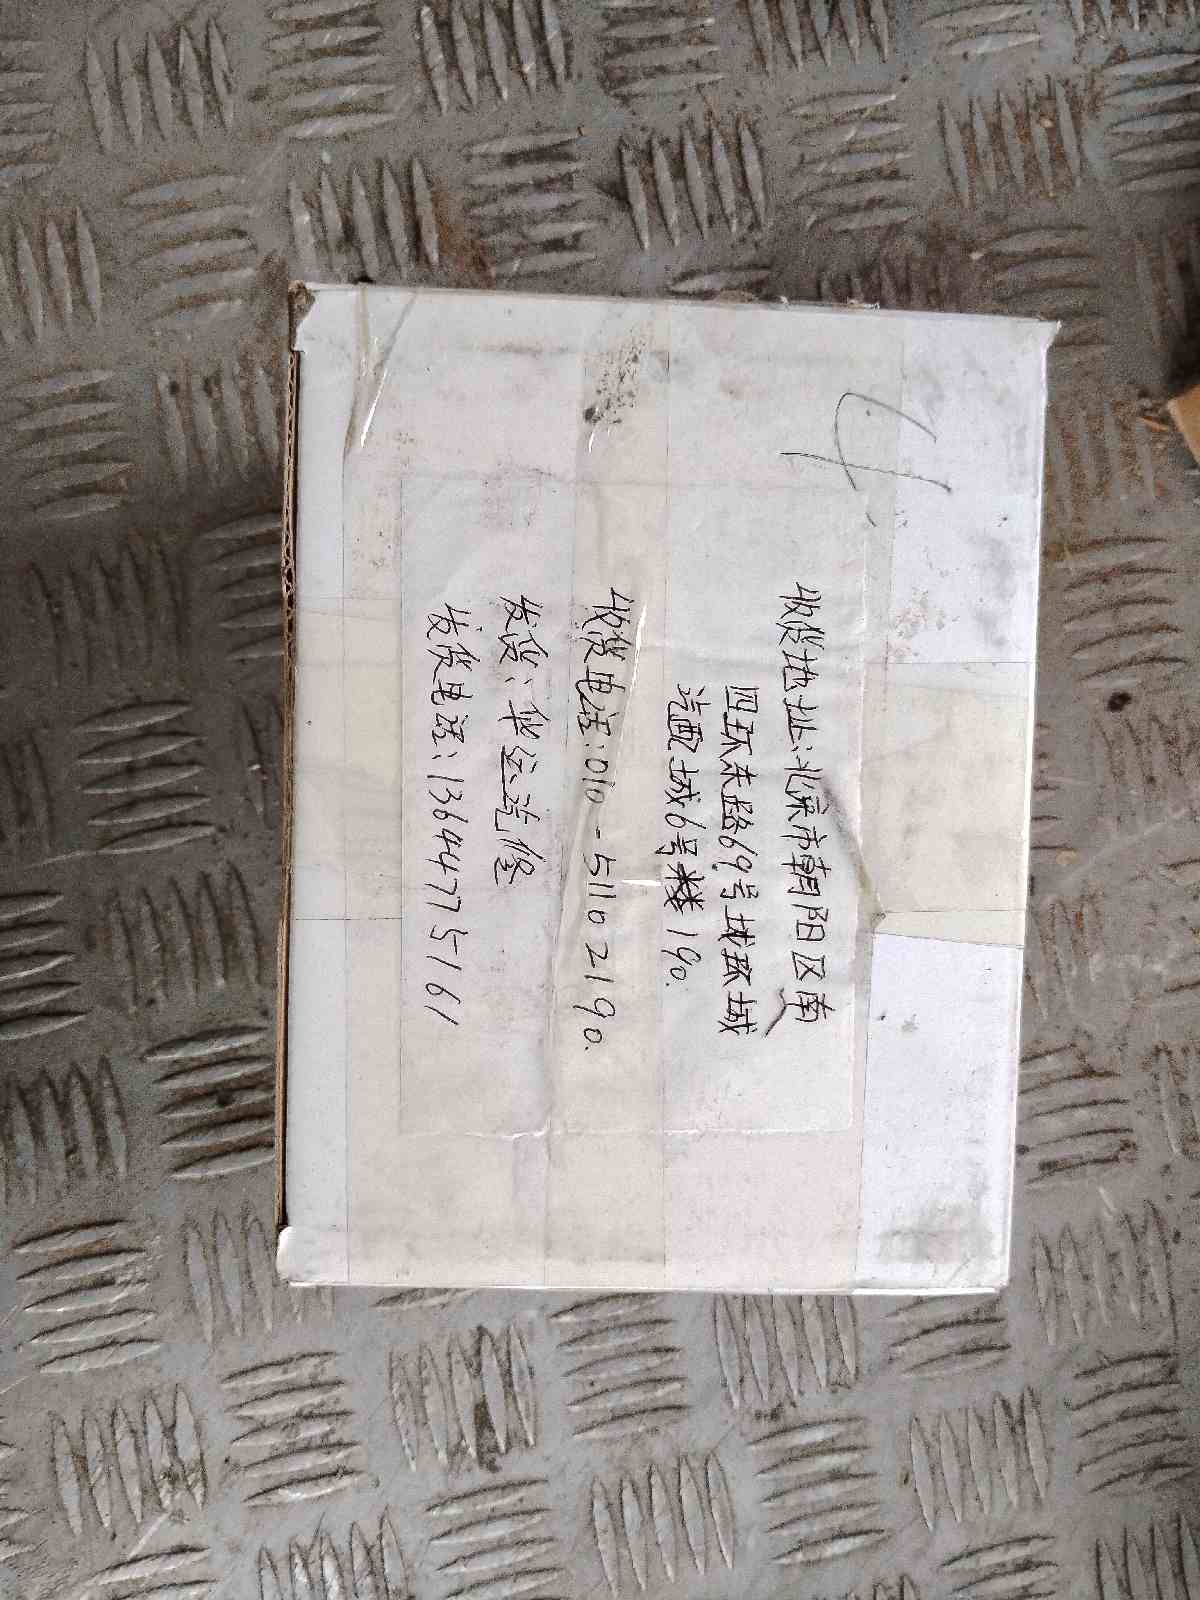 4
收货地址:北京市朝阳区南
四环东路69号城环城
汽配城6号楼190.
收货电话:010-51102190.
发货:华运汽修
发货电话:13644775161